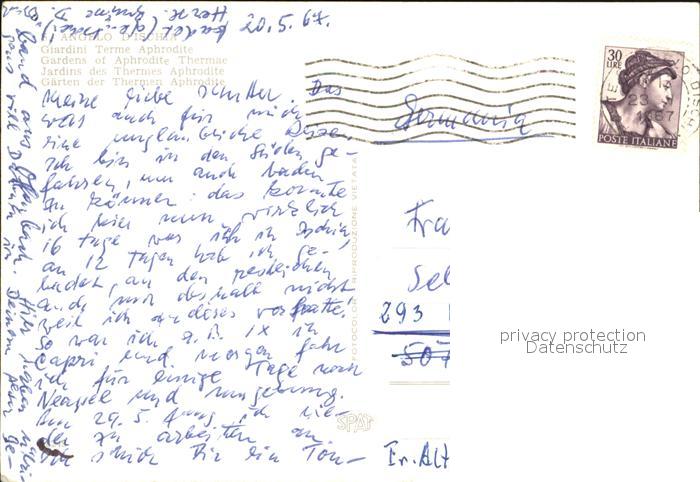 20. 5. 67.
S. ANGELO D'ISCHIA
Giardini Terme Aphrodite
Gardens of Aphrodite Thermae
Jardins des Thermes Aphrodite
Gärten der Thermen Aphrodite
Meine liebe Mutter. Das
was auch für mich
eine unglaubliche
Ich bin in den Süden ge-
fahren, um auch baden
zu können: das konnte
ich hier nun wirklich
16 Tage war ich in Ischia,
an 12 Tagen hab ich ge-
badet, an den restlichen
auch nur deshalb nicht
weil ich anderes vorhatte!
So war ich z. B. 1x in
Capri und morgen fahr
ich für einige Tage nach
Neapel und Umgebung.
Am 29. 5. fang ich wie-
der zu arbeiten an.
schick Dir ein Ton-
band aus
FOTOCOLOR RIPRODUZIONE VIETATA
SPAT
30
LIRE
23
1967
POSTE ITALIANE
Germania
Fra
Sel
293
507
Er. Alt
privacy protection
Datenschutz